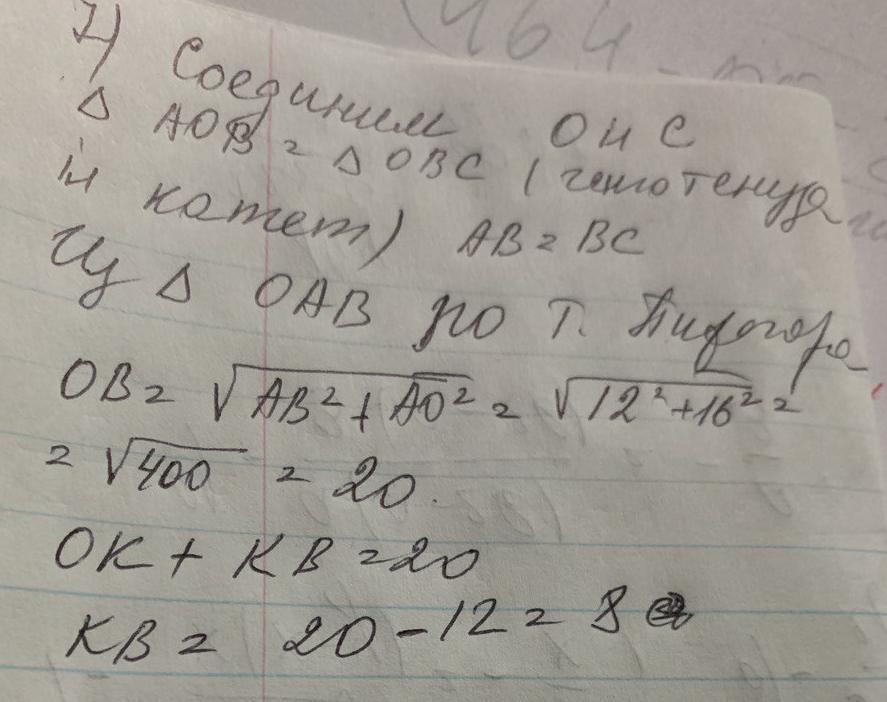 464
7) Соединим О и С
Δ AOB = Δ OBC (гипотенуза
и катет) AB = BC
Из Δ OAB по т. Пифагора
OB = √(AB² + AO²) = √(12² + 16²) =
= √400 = 20.
OK + KB = 20
KB = 20 - 12 = 8